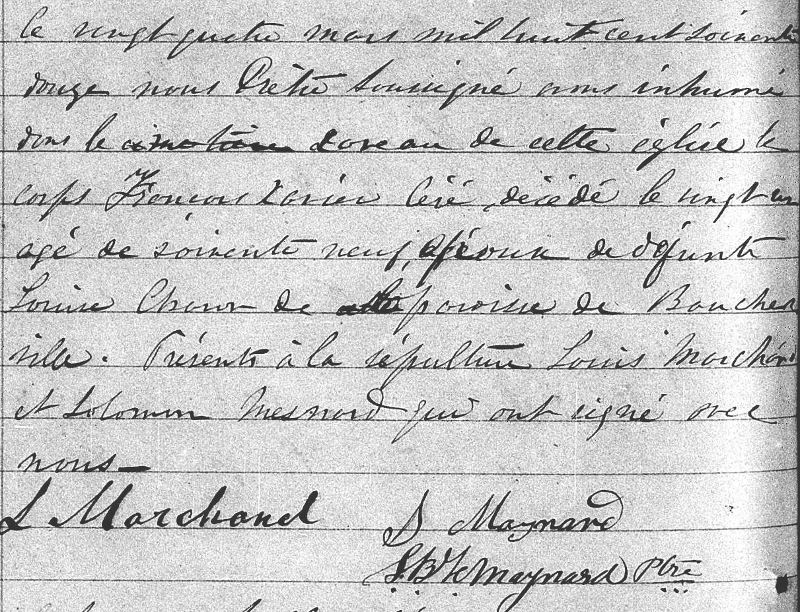 le vingt quatre mars mil huit cent soixante
douze nous Prêtre soussigné avons inhumé
dans le cimetière caveau de cette église le
corps François Xavier Céré, décédé le vingt un
agé de soixante neuf, époux de défunte
Louise de paroisse de Boucher
ville. Présents à la sépulture Louis Marchand
et Solomon Mesnard qui ont signé avec
nous—
L Marchand S Maynard
Maynard Ptre